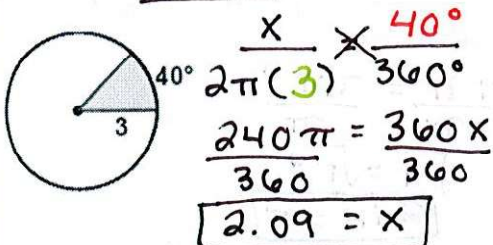 40°
3
x/2π(3) = 40°/360°
240π/360 = 360x/360
2.09 = x